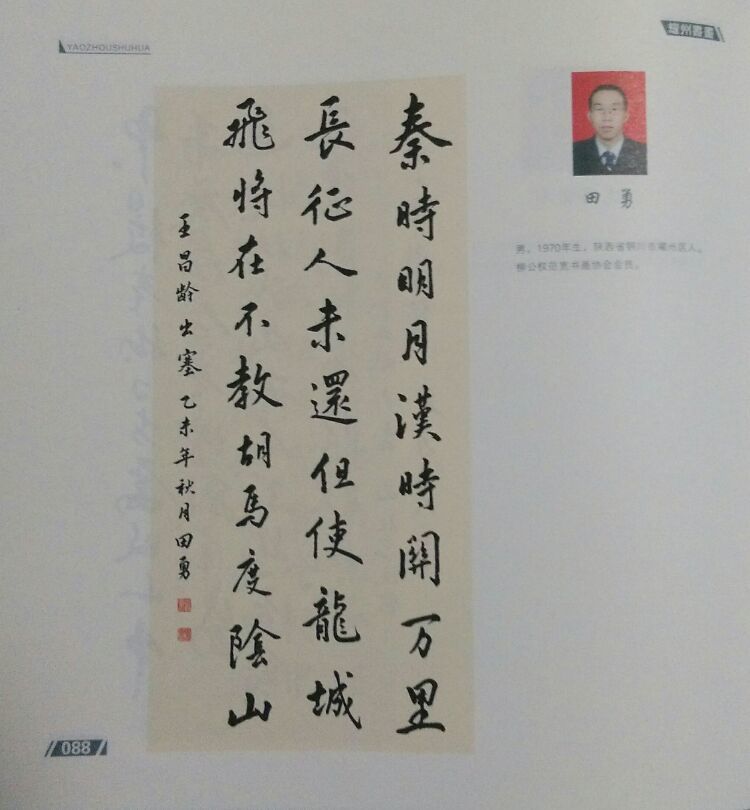 YAOZHOUSHUHUA
耀州書畫
秦時明月漢時關万里
長征人未還但使龍城
飛将在不教胡馬度陰山
王昌齡出塞乙未年秋月田勇
田勇
男，1970年生，陕西省铜川市耀州区人。
柳公权范宽书画协会会员。
088